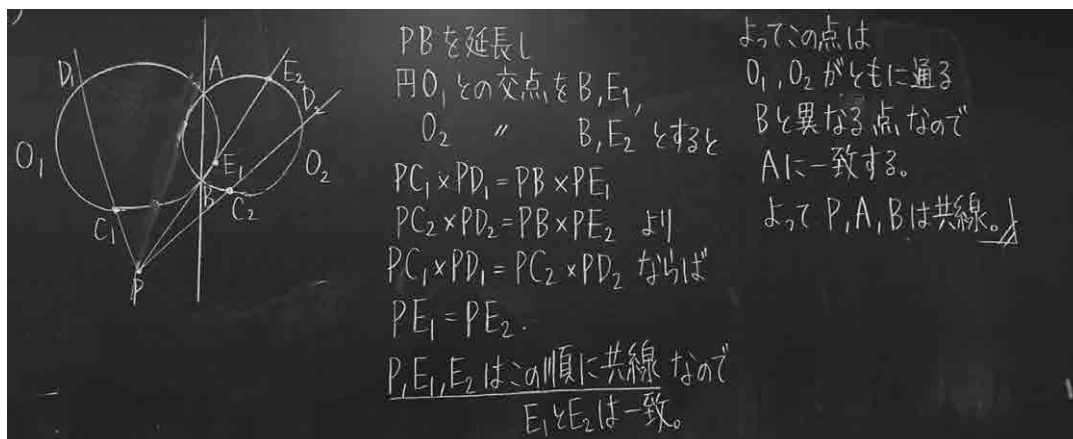 D₁
A
E₂
D₂
O₁
E₁
O₂
B
C₂
C₁
P
PBを延長し
円O₁との交点をB,E₁,
O₂ 〃 B,E₂とすると
PC₁×PD₁=PB×PE₁
PC₂×PD₂=PB×PE₂ より
PC₁×PD₁=PC₂×PD₂ ならば
PE₁=PE₂.
P,E₁,E₂はこの順に共線なので
E₁とE₂は一致。
よってこの点は
O₁,O₂がともに通る
Bと異なる点なので
Aに一致する。
よってP,A,Bは共線。